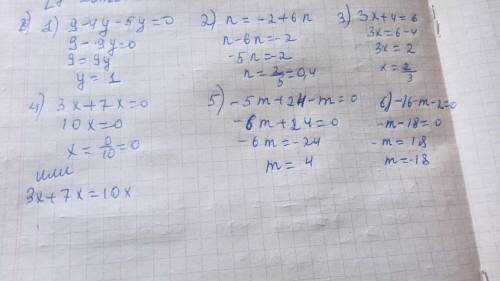 2) 1) 9-4y-5y=0
9-9y=0
9=9y
y=1
2) n=-2+6n
n-6n=-2
-5n=-2
n=2/5=0,4
3) 3x+4=6
3x=6-4
3x=2
x=2/3
4) 3x+7x=0
10x=0
x=0/10=0
или
3x+7x=10x
5) -5m+24-m=0
-6m+24=0
-6m=-24
m=4
6) -16-m-2=0
-m-18=0
-m=18
m=-18